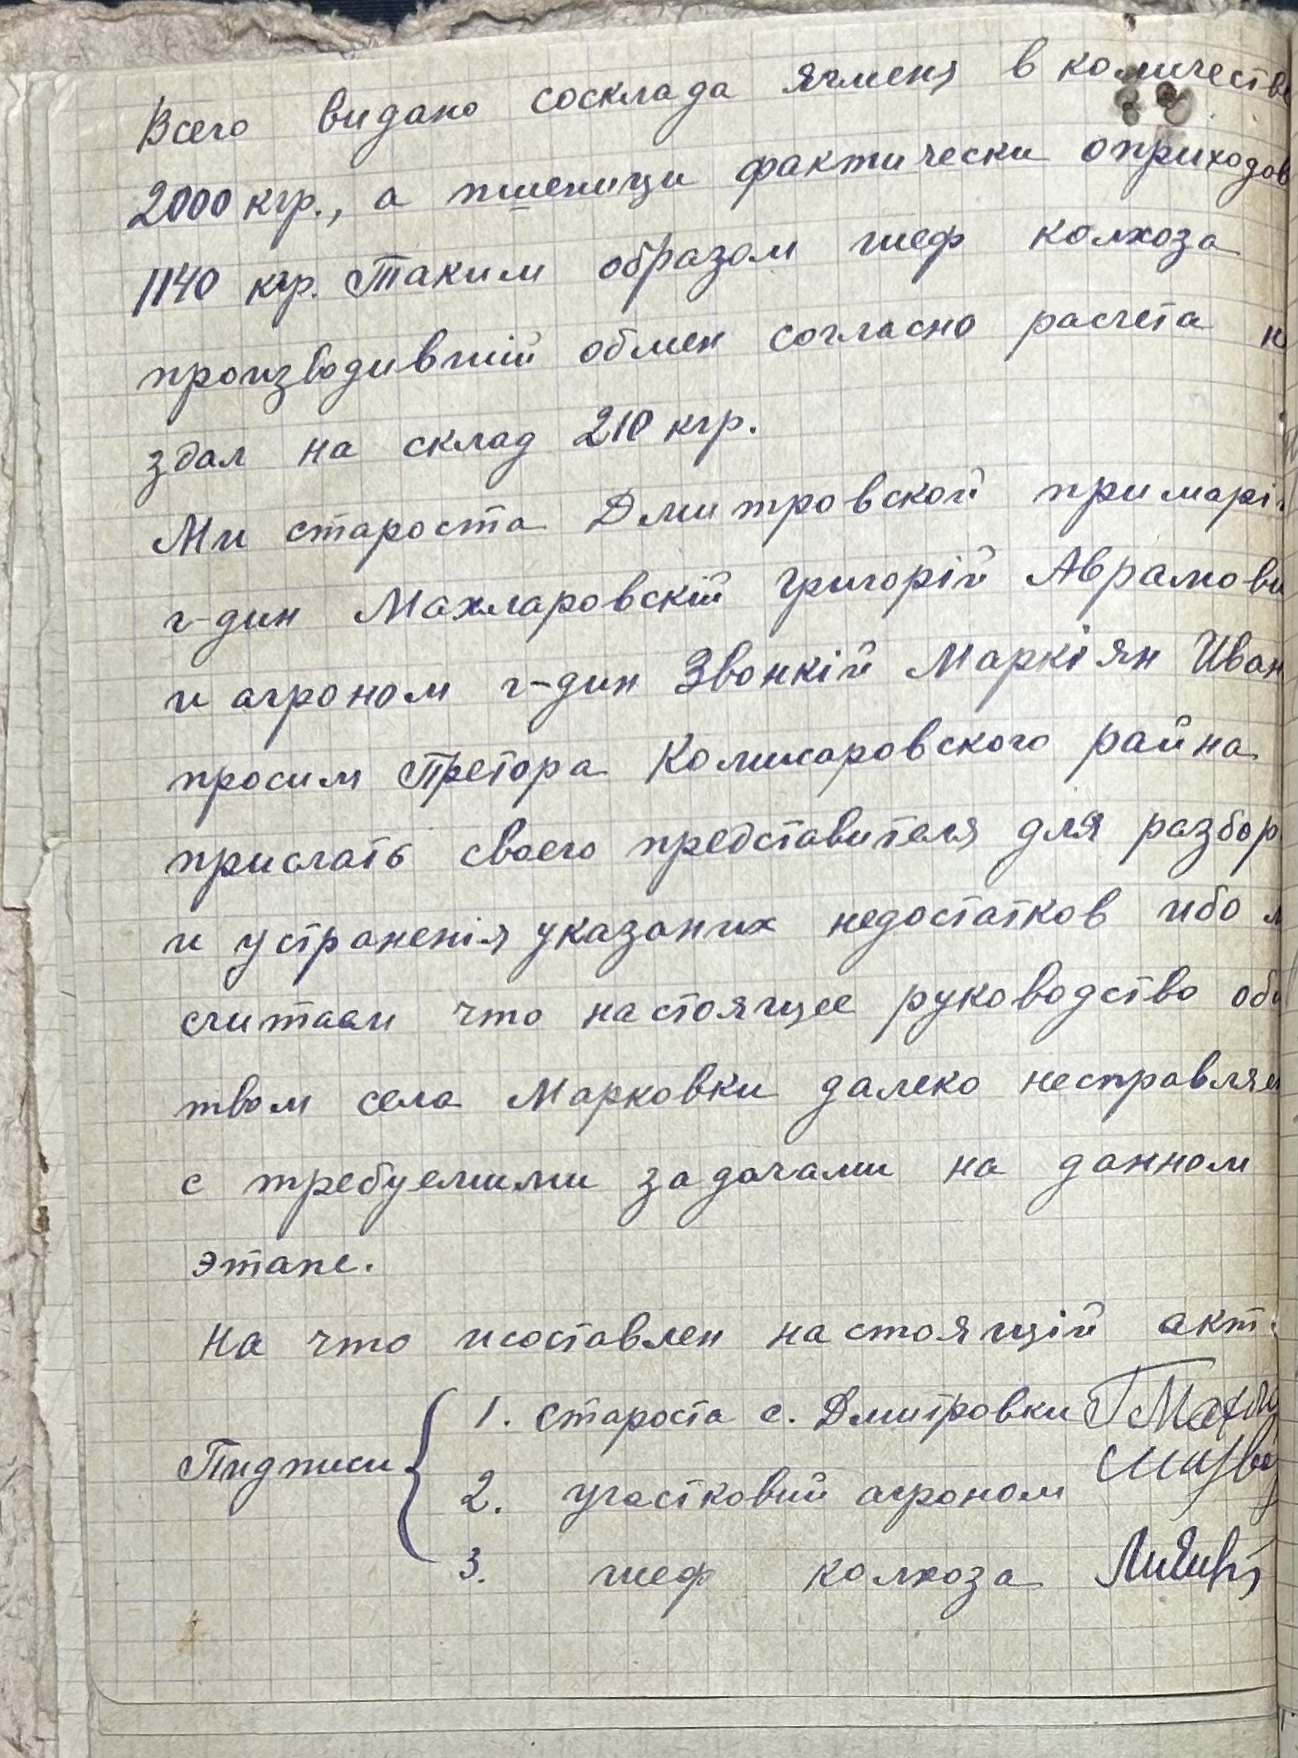 Всего видано сосклада ячменя в количестве
2000 кгр., а пшеници фактически оприходов
1140 кгр. Таким образом шеф колхоза
производивший обмен согласно расчета н
здал на склад 210 кгр.
Ми староста Дмитровской примарі
г-дин Махларовскій Григорій Аврамови
и агроном г-дин Звонкій Маркіян Иван
просим Претора Комисаровского райна
прислать своего представителя для разбор
и устраненія указаних недостатков ибо м
считаем что настоящее руководство общ
твом села Марковки далеко несправляе
с требуемими задачами на данном
этапе.
На что исоставлен настоящій акт:
Пидписи
1. Староста с. Дмитровки
2. участковий агроном
3. шеф колхоза